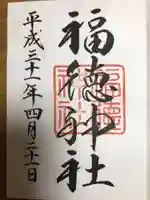 福徳神社
平成三十一年四月二十一日